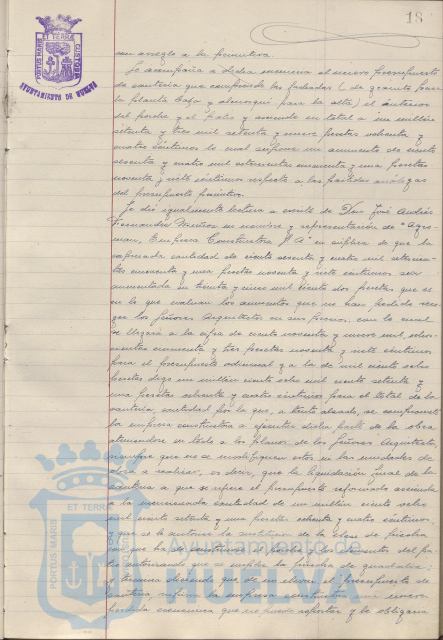 18
PORTUS MARIS ET TERRA CUSTODIA
AYUNTAMIENTO DE HUELVA
con arreglo a la primitiva.
Se acompaña a dicha memoria el nuevo presupuesto
de cantería que comprende las fachadas ( de granito para
la planta baja y almorquí para la alta) el interior
del porche y el patio y asciende en total a un millón
setenta y tres mil setenta y nueve pesetas ochenta y
cuatro céntimos lo cual supone un aumento de ciento
sesenta y cuatro mil setecientas cincuenta y una pesetas
noventa y siete céntimos respecto a las partidas análogas
del presupuesto primitivo.
Se dió igualmente lectura a escrito de Don José Andrés
Fernández en nombre y representación de "Agro-
man, Empresa Constructora S.A." en súplica de que la
expresada cantidad de ciento sesenta y cuatro mil setecien-
tas cincuenta y una pesetas noventa y siete céntimos sea
aumentada en treinta y cinco mil ciento dos pesetas que es
en lo que evalúan los aumentos que no han podido reco-
ger los Señores Arquitectos en sus precios, con lo cual
se llegará a la cifra de ciento noventa y nueve mil, ocho-
cientas cincuenta y tres pesetas noventa y siete céntimos
para el presupuesto adicional y a la de mil ciento ocho
pesetas digo un millón ciento ocho mil ciento setenta y
una pesetas ochenta y cuatro céntimos para el total de la
cantería, cantidad por la que, a tanto alzado, se compromete
la empresa constructora a ejecutar dicha parte de la obra
ateniéndose en todo a los planos de los Señores Arquitectos
siempre que no se modifiquen estos en las unidades de
obra a realizar, es decir, que la liquidación final de la
cantería a que se refiere el presupuesto reformado ascienda
a la mencionada cantidad de un millón ciento ocho
mil ciento setenta y una pesetas ochenta y cuatro céntimos,
y que se le autorice la sustitución de la clase de piedra
con que ha de construirse el porche y los elementos del pa-
tio autorizando que se emplee la piedra de
y termina diciendo que de no elevar el presupuesto de
cantería, sufriría la empresa constructora un nuevo
perjuicio económico que no puede soportar y le obligaría
PORTUS MARIS ET TERRA
Ayuntamiento de
HUELVA